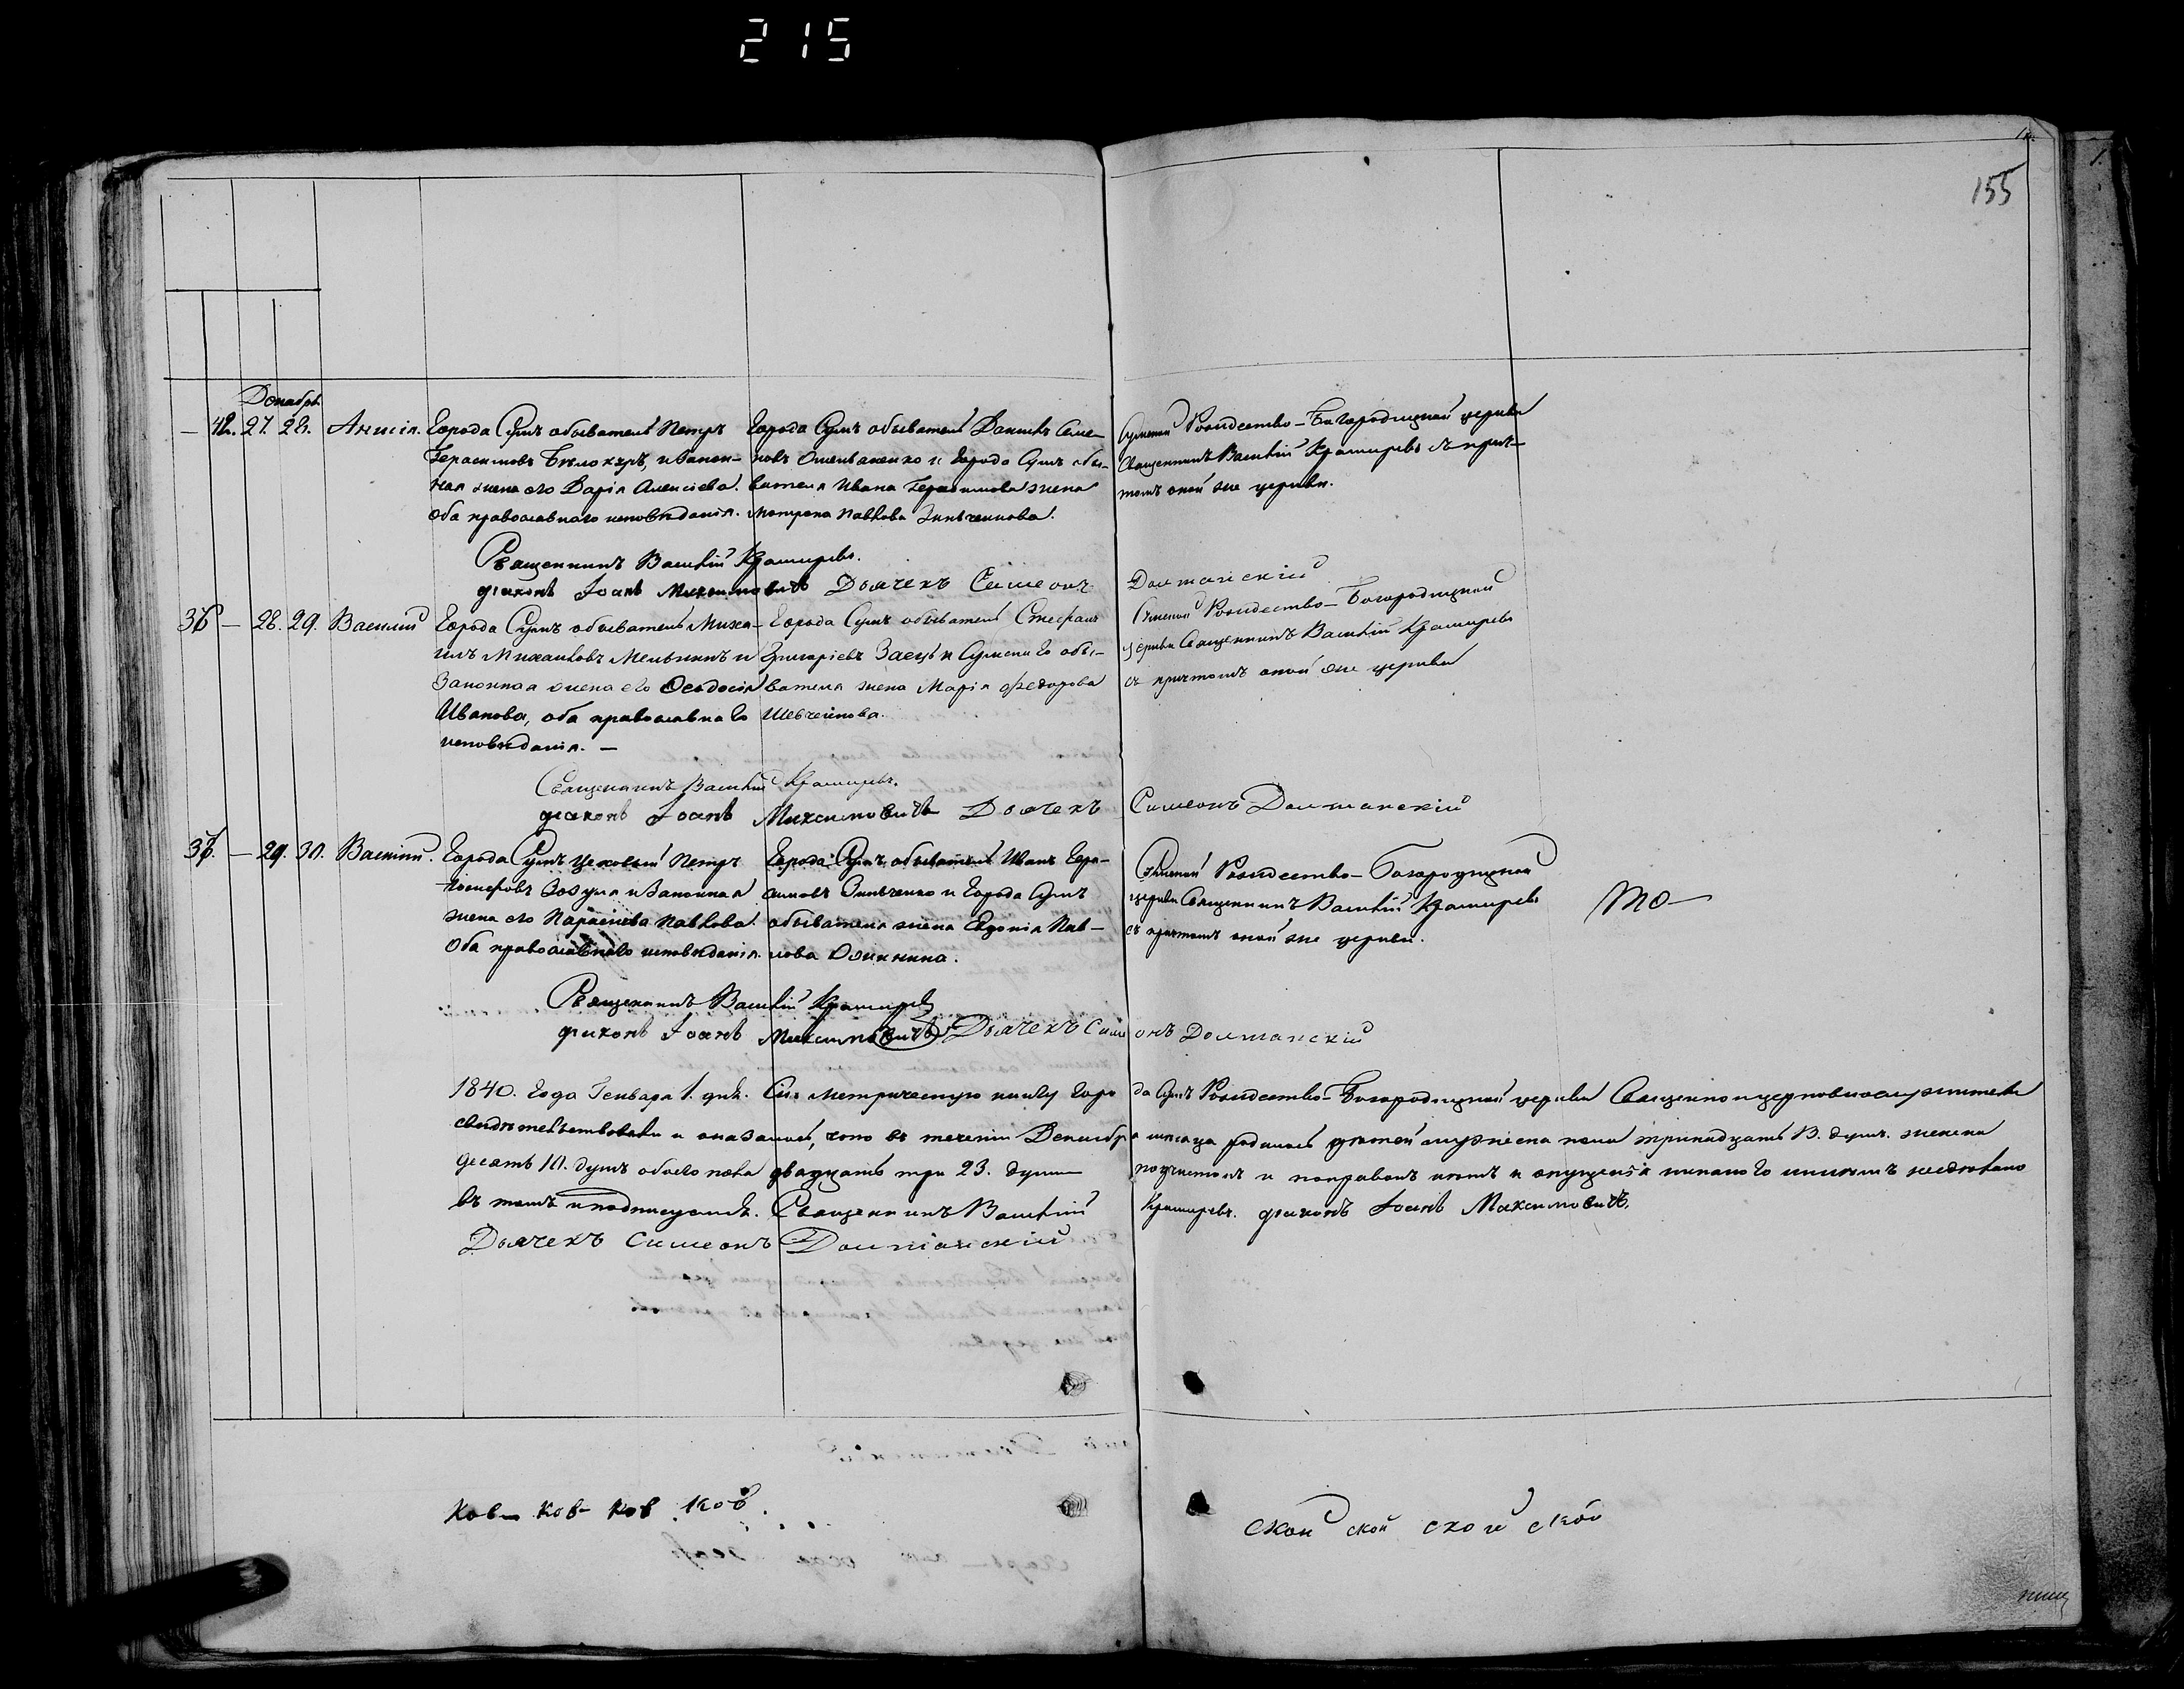 215
155
Декабрь
— 42. 27. 28. Анисія.
Города Сумъ обыватель Петръ
Герасимовъ Бѣлокуръ, и Закон-
ная жена его Дарія Алексіева.
Оба православнаго исповѣданія.
Города Сумъ обыватель Даніилъ Семе-
новъ и Города Сумъ обы-
вателя Ивана Герасимова жена
Матрона Павлова Зинченкова.
Сумской Рождество-Богородицкой церкви
Священникъ Василій Крамаревъ съ прич-
томъ оной же церкви.
Священникъ Василій Крамаревъ.
діаконъ Іоанъ Максимовичъ Дьячекъ Симеонъ Долтанскій
36 — 28. 29. Василій
Города Сумъ обыватель Миха-
илъ Михаиловъ Мельникъ и
Законная жена его Ѳеодосія
Иванова, оба православнаго
исповѣданія. —
Города Сумъ обыватель Стефанъ
Григоріевъ Заецъ и Сумскаго обы-
вателя жена Марія Федорова
Шевченкова.
Сумской Рождество-Богородицкой
церкви Священникъ Василій Крамаревъ
съ причтомъ оной же церкви
Священникъ Василій Крамаревъ.
діаконъ Іоанъ Максимовичъ Дьячекъ Симеонъ Долтанскій
37. — 29. 30. Василій.
Города Сумъ цеховый Петръ
Іосифовъ Зозуля и Законная
жена его Параскева Павлова.
Оба православнаго исповѣданія.
Города Сумъ обыватель Иванъ Гера-
симовъ Зинченко и Города Сумъ
обывателя жена Евдокія Пав-
лова
Сумской Рождество-Богородицкой
церкви Священникъ Василій Крамаревъ
съ причтомъ оной же церкви.
то
Священникъ Василій Крамаревъ
діаконъ Іоанъ Максимовичъ Дьячекъ Симеонъ Долтанскій
1840. Года Генваря 1. дня. Сію Метрическую книгу Города Сумъ Рождество-Богородицкой церкви Священно и церковнослужители
свидѣтельствовали и оказалось, что въ теченіи Декабря мѣсяца родилось дѣтей мужеска пола тринадцать 13. душъ. женска
десять 10. душъ обоего пола двадцать три 23. души подчистокъ и поправокъ нѣтъ и опущенія никакого не сдѣлано
въ томъ и подписуемся. Священникъ Василій Крамаревъ. діаконъ Іоанъ Максимовичъ.
Дьячекъ Симеонъ Долтанскій
ков- ков- ков ков
ской ской ской ской